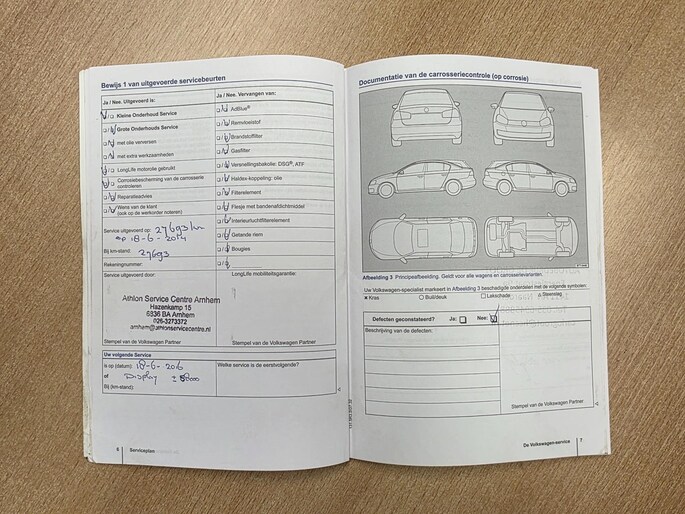 Bewijs 1 van uitgevoerde servicebeurten
Ja / Nee. Uitgevoerd is:
Kleine Onderhoud Service
Grote Onderhouds Service
met olie verversen
met extra werkzaamheden
LongLife motorolie gebruikt
Corrosiebescherming van de carrosserie
controleren
Reparatieadvies
Wens van de klant
(ook op de werkorder noteren)
Ja / Nee. Vervangen van:
AdBlue®
Remvloeistof
Brandstoffilter
Gasfilter
Versnellingsbakolie: DSG®, ATF
Haldex-koppeling: olie
Filterelement
Flesje met bandenafdichtmiddel
Interieurluchtfilterelement
Getande riem
Bougies
Service uitgevoerd op: 27693 km
op 18-6-2014
Bij km-stand: 27693
Rekeningnummer:
Service uitgevoerd door:
Athlon Service Centre Arnhem
Hazenkamp 15
6836 BA Arnhem
026-3273372
arnhem@athlonservicecentre.nl
Stempel van de Volkswagen Partner
LongLife mobiliteitsgarantie:
Stempel van de Volkswagen Partner
Uw volgende Service
is op (datum): 18-6-2016
of Display ± 58000
Bij (km-stand):
Welke service is de eerstvolgende?
6 Serviceplan
Documentatie van de carrosseriecontrole (op corrosie)
Afbeelding 3 Principeafbeelding. Geldt voor alle wagens en carrosserievarianten.
Uw Volkswagen-specialist markeert in Afbeelding 3 beschadigde onderdelen met de volgende symbolen:
Kras Buil/deuk Lakschade Steenslag
Defecten geconstateerd? Ja: Nee:
Beschrijving van de defecten:
Stempel van de Volkswagen Partner
De Volkswagen-service 7